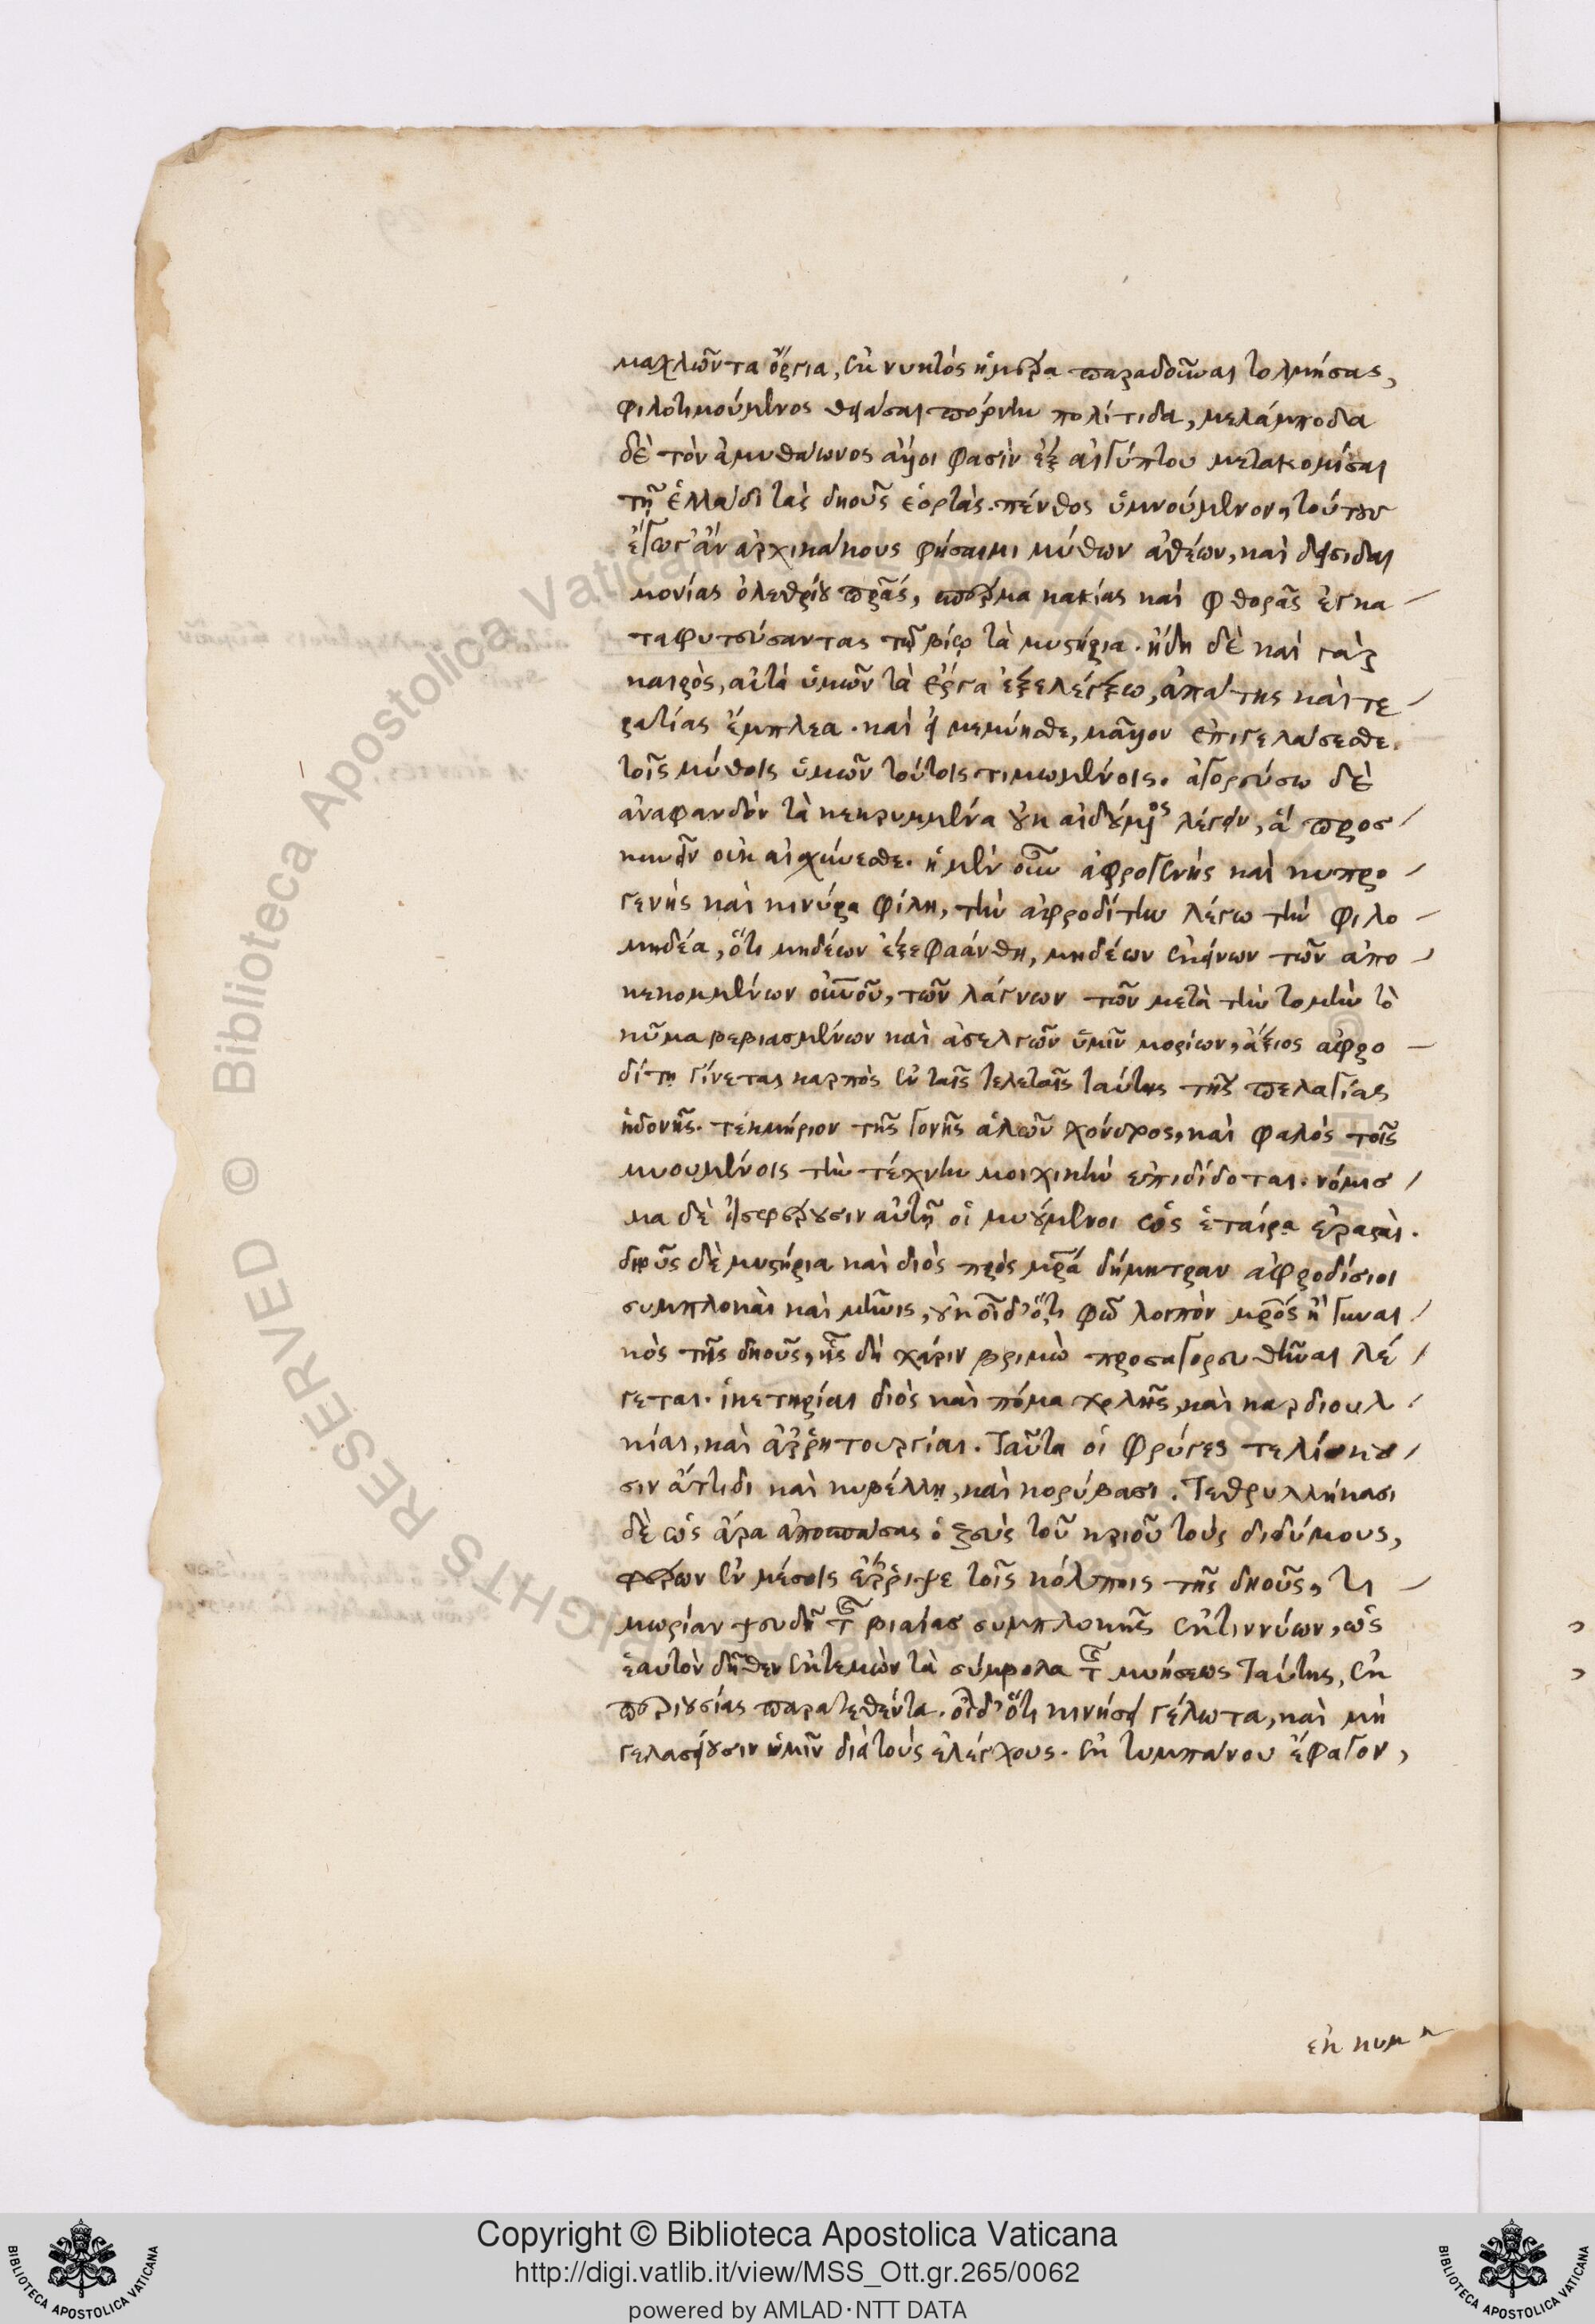 μαχλῶντα ὄργια, ἐκ νυκτὸς ἡμέρα παραδοῦναι τολμήσας,
φιλοτιμούμενος θειάσαι πόρνην πολίτιδα, μελάμποδα
δὲ τὸν ἀμυθάωνος ἄλλοι φασὶν ἐξ αἰγύπτου μετακομίσαι
τῇ ἑλλάδι τὰς δηοῦς ἑορτὰς. πένθος ὑμνούμενον, τούτου
ἔγωγ' ἂν ἀρχικάκους φήσαιμι μύθων ἀθέων, καὶ δεισιδαι
μονίας ὀλεθρίου πρας, σπέρμα κακίας καὶ φθορᾶς ἐγκα
ταφυτεύσαντας τῷ βίῳ τὰ μυστήρια. ἤδη δὲ καὶ γὰρ
καιρὸς, αὐτὰ ὑμῶν τὰ ὄργα ἐξελέγξω, ἀπάτης καὶ τε
ρατίας ἔμπλεα. καὶ εἰ μεμύησθε, μᾶλλον ἐπιγελάσεσθε
τοῖς μύθοις ὑμῶν τούτοις τιμωμένοις. ἀγορεύσω δὲ
ἀναφανδὸν τὰ κεκρυμμένα οὐκ αἰδούμενος λέγειν, ἃ προσ
κυνεῖν οὐκ αἰσχύνεσθε. ἡ μὲν οὖν ἀφρογενής καὶ κυπρο
γενής καὶ κινύρα φίλη, τὴν ἀφροδίτην λέγω τὴν φιλο
μηδέα, ὅτι μηδέων ἐξεφαάνθη, μηδέων ἐκείνων τῶν ἀπο
κεκομμένων οὐνου, τῶν λάγνων τῶν μετὰ τὴν τομὴν τὸ
κῦμα βεβιασμένων καὶ ἀσελγῶν ὑμῖν μορίων, ἄξιος ἀφρο
δίτη γίνεται καρπὸς ἐν ταῖς τελεταῖς ταύτης τῆς πελαγίας
ἡδονῆς. τεκμήριον τῆς γονῆς ἁλῶν χόνδρος, καὶ φαλὸς τοῖς
μυουμένοις τὴν τέχνην μοιχικὴν ἐπιδίδοται. νόμισ
μα δὲ εἰσφέρουσιν αὐτῇ οἱ μυούμενοι ὡς ἑταίρα ἐρασταὶ.
δηοῦς δὲ μυστήρια καὶ διὸς πρὸς μρα δήμητραν ἀφροδίσιοι
συμπλοκαὶ καὶ μῆνις, οὐκ οἶδ' ὅτι φῶ λοιπὸν μρος ἢ γυναι
κὸς τῆς δηοῦς, ἧς δὴ χάριν βριμὼ προσαγορευθῆναι λέ
γεται. ἱκετηρίαι διὸς καὶ πόμα χολῆς, καὶ καρδιουλ
κίαι, καὶ ἀῤῥητουργίαι. ταῦτα οἱ φρύγες τελίσκου
σιν ἄττιδι καὶ κυβέλλῃ, καὶ κορύβασι. τεθρυλλήκασι
δὲ ὡς ἄρα ἀποσπάσας ὁ ζεὺς τοῦ κριοῦ τοὺς διδύμους,
φέρων ἐν μέσοις ἔῤῥιψε τοῖς κόλποις τῆς δηοῦς, τι
μωρίαν ψευδῆ τῆς βιαίας συμπλοκῆς ἐκτιννύων, ὡς
ἑαυτὸν δῆθεν ἐκτεμὼν τὰ σύμβολα τῆς μυήσεως ταύτης, ἐκ
περιουσίας παρατεθέντα. οἶδ' ὅτι κινήσει γέλωτα, καὶ μὴ
γελασείουσιν ὑμῖν διὰ τοὺς ἐλέγχους. ἐκ τυμπάνου ἔφαγον,
ἐκ κυμ
Copyright © Biblioteca Apostolica Vaticana
http://digi.vatlib.it/view/MSS_Ott.gr.265/0062
powered by AMLAD·NTT DATA
BIBLIOTECA APOSTOLICA VATICANA
BIBLIOTECA APOSTOLICA VATICANA